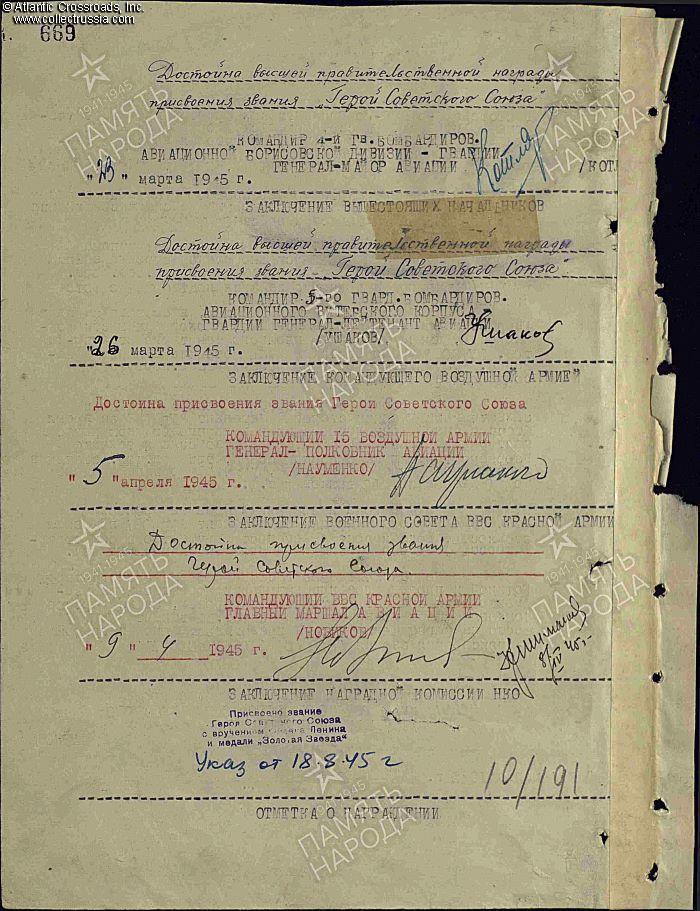 © Atlantic Crossroads, Inc.
www.collectrussia.com
669
Достойна высшей правительственной награды
присвоения звания „Герой Советского Союза"
КОМАНДИР 4-й ГВ.БОМБАРДИРОВ.
АВИАЦИОННОЙ БОРИСОВСКОЙ ДИВИЗИИ - ГВАРДИИ
ГЕНЕРАЛ-МАЙОР АВИАЦИИ /КОТЛ
"23" марта 1945 г.
ЗАКЛЮЧЕНИЕ ВЫШЕСТОЯЩИХ НАЧАЛЬНИКОВ
Достойна высшей правительственной награды
присвоения звания „Герой Советского Союза"
КОМАНДИР 5-го ГВАРД.БОМБАРДИРОВ.
АВИАЦИОННОГО ВИТЕБСКОГО КОРПУСА
ГВАРДИИ ГЕНЕРАЛ-ЛЕЙТЕНАНТ АВИАЦИИ
/УШАКОВ/
Ушаков
"26 марта 1945 г.
ЗАКЛЮЧЕНИЕ КОМАНДУЮЩЕГО ВОЗДУШНОЙ АРМИЕЙ
Достоина присвоения звания Герои Советского Союза
КОМАНДУЮЩИЙ 15 ВОЗДУШНОЙ АРМИИ
ГЕНЕРАЛ- ПОЛКОВНИК АВИАЦИИ
/НАУМЕНКО/
Науменко
"5" апреля 1945 г.
ЗАКЛЮЧЕНИЕ ВОЕННОГО СОВЕТА ВВС КРАСНОЙ АРМИИ
Достойна присвоения звания
Герой Советского Союза
КОМАНДУЮЩИЙ ВВС КРАСНОЙ АРМИИ
ГЛАВНЫЙ МАРШАЛ АВИАЦИИ
/НОВИКОВ/
"9" 4 1945 г.
ЗАКЛЮЧЕНИЕ НАГРАДНОЙ КОМИССИИ НКО
Присвоено звание
Героя Советского Союза
с вручением ордена Ленина
и медали „Золотая Звезда"
Указ от 18.8.45 г
10/191
ОТМЕТКА О НАГРАЖДЕНИИ
1941-1945
ПАМЯТЬ
НАРОДА